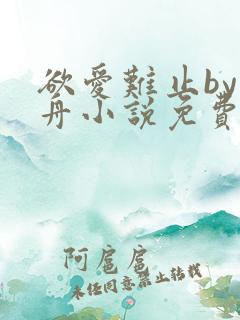 欲爱難止by
舟小說免費
阿扈扈
未经同意禁止转载